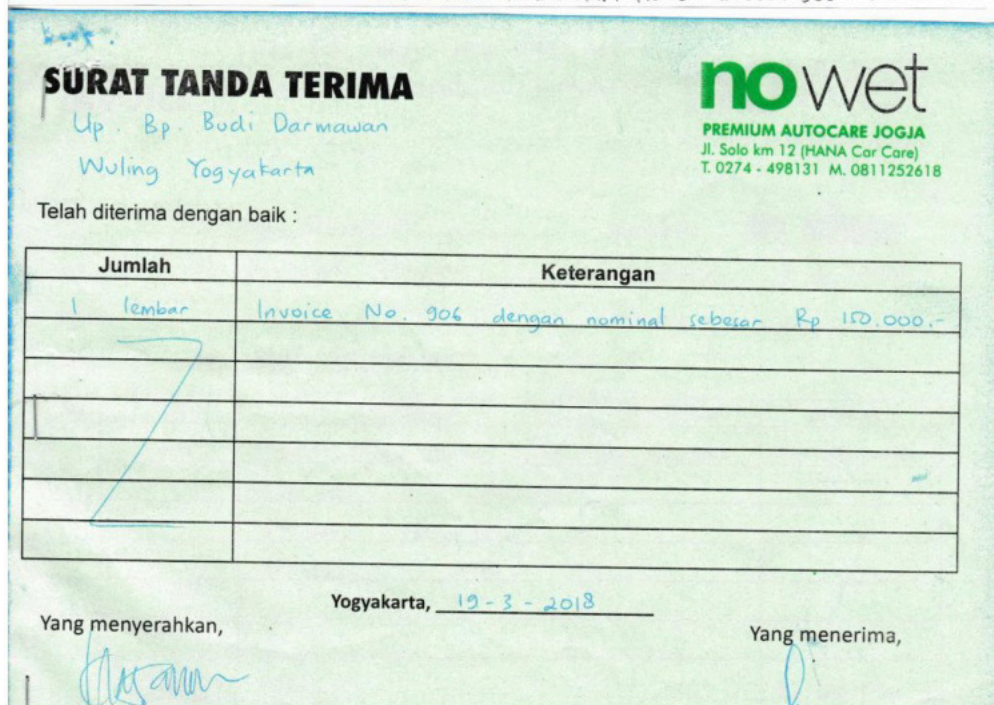 SURAT TANDA TERIMA
Up. Bp. Budi Darmawan
Wuling Yogyakarta
nowet
PREMIUM AUTOCARE JOGJA
Jl. Solo km 12 (HANA Car Care)
T. 0274 - 498131 M. 0811252618
Telah diterima dengan baik :
Jumlah Keterangan
1 lembar Invoice No. 906 dengan nominal sebesar Rp 150.000.-
Yogyakarta, 19 - 3 - 2018
Yang menyerahkan, Yang menerima,